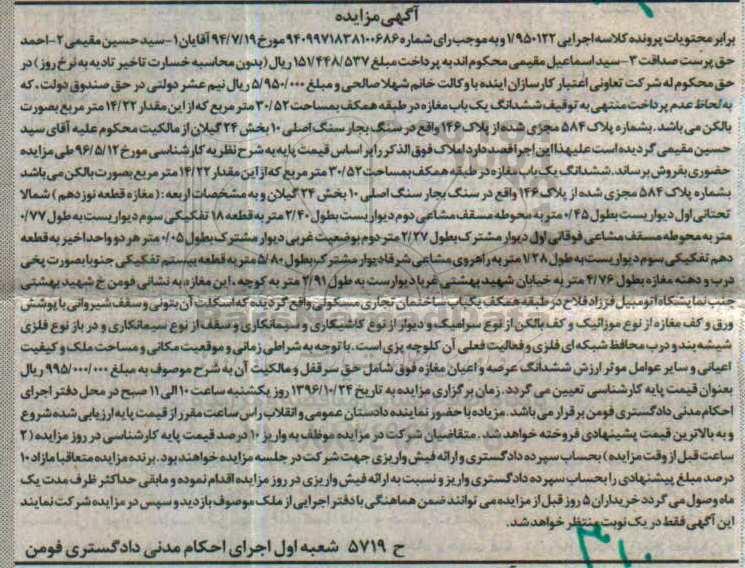 آگهی مزایده
برابر محتویات پرونده کلاسه اجرایی ۱/۹۵۰۱۲۲ و به موجب رای شماره ۹۴۰۹۹۷۱۸۳۸۱۰۰۶۸۶ مورخ ۹۴/۷/۱۹ آقایان ۱- سید حسین مقیمی ۲- احمد
حق پرست صداقت ۳- سید اسماعیل مقیمی محکوم اند به پرداخت مبلغ ۱۵۱/۴۴۸/۵۳۷ ریال (بدون محاسبه خسارت تاخیر تادیه به نرخ روز) در
حق محکوم له شرکت تعاونی اعتبار کارسازان آینده با وکالت خانم شهلا صالحی و مبلغ ۵/۹۵۰/۰۰۰ ریال نیم عشر دولتی در حق صندوق دولت، که
به لحاظ عدم پرداخت منتهی به توقیف ششدانگ یک باب مغازه در طبقه همکف بمساحت ۳۰/۵۲ متر مربع که از این مقدار ۱۴/۲۲ متر مربع بصورت
بالکن می باشد. بشماره پلاک ۵۸۴ مجزی شده از پلاک ۱۴۶ واقع در سنگ بجار سنگ اصلی ۱۰ بخش ۲۴ گیلان از مالکیت محکوم علیه آقای سید
حسین مقیمی گردیده است علیهذا این اجرا قصد دارد املاک فوق الذکر را بر اساس قیمت پایه به شرح نظریه کارشناسی مورخ ۹۶/۵/۱۲ طی مزایده
حضوری بفروش برساند. ششدانگ یک باب مغازه در طبقه همکف بمساحت ۳۰/۵۲ متر مربع که از این مقدار ۱۴/۲۲ متر مربع بصورت بالکن می باشد
بشماره پلاک ۵۸۴ مجزی شده از پلاک ۱۴۶ واقع در سنگ بجار سنگ اصلی ۱۰ بخش ۲۴ گیلان و به مشخصات اربعه: (مغازه قطعه نوزدهم) شمالا
تحتانی اول دیواریست بطول ۰/۴۵ متر به محوطه مسقف مشاعی دوم دیواریست بطول ۲/۴۰ متر به قطعه ۱۸ تفکیکی سوم دیواریست به طول ۰/۷۷
متر به محوطه مسقف مشاعی فوقانی اول دیوار مشترک بطول ۲/۲۷ متر دوم بوضعیت غربی دیوار مشترک بطول ۰/۰۵ متر هر دو واحد اخیر به قطعه
دهم تفکیکی سوم دیواریست به طول ۱/۲۸ متر به راهروی مشاعی شرقا دیوار مشترک بطول ۵/۸۰ متر به قطعه بیستم تفکیکی جنوبا بصورت پخی
درب و دهنه مغازه بطول ۴/۷۶ متر به خیابان شهید بهشتی غربا دیواریست به طول ۲/۹۱ متر به کوچه، این مغازه به نشانی فومن خ شهید بهشتی
جنب نمایشگاه اتومبیل فرزاد فلاح در طبقه همکف یکباب ساختمان تجاری مسکونی واقع گردیده که اسکلت آن بتونی و سقف شیروانی با پوشش
ورق و کف مغازه از نوع موزائیک و کف بالکن از نوع سرامیک و دیوار از نوع کاشیکاری و سیمانکاری و سقف از نوع سیمانکاری و درباز نوع فلزی
شیشه بند و درب محافظ شبکه ای فلزی و فعالیت فعلی آن کلوچه پزی است. با توجه به شرایط زمانی و موقعیت مکانی و مساحت ملک و کیفیت
اعیانی و سایر عوامل موثر ارزش ششدانگ عرصه و اعیان مغازه فوق شامل حق سرقفلی و مالکیت آن به شرح موصوف به مبلغ ۹۹۵/۰۰۰/۰۰۰ ریال
بعنوان قیمت پایه کارشناسی تعیین می گردد. زمان برگزاری مزایده به تاریخ ۱۳۹۶/۱۰/۲۴ روز یکشنبه ساعت ۱۰ الی ۱۱ صبح در محل دفتر اجرای
احکام مدنی دادگستری فومن برقرار می باشد. مزایده با حضور نماینده دادستان عمومی و انقلاب راس ساعت مقرر از قیمت پایه ارزیابی شده شروع
و به بالاترین قیمت پیشنهادی فروخته خواهد شد. متقاضیان شرکت در مزایده موظف به واریز ۱۰ درصد قیمت پایه کارشناسی در روز مزایده (۲
ساعت قبل از وقت مزایده) بحساب سپرده دادگستری و ارائه فیش واریزی جهت شرکت در جلسه مزایده خواهند بود. برنده مزایده متعاقبا مازاد ۱۰
درصد مبلغ پیشنهادی را بحساب سپرده دادگستری واریز و نسبت به ارائه فیش واریزی در روز مزایده اقدام نموده و مابقی حداکثر ظرف مدت یک
ماه وصول می گردد خریداران ۵ روز قبل از مزایده می توانند ضمن هماهنگی با دفتر اجرایی از ملک موصوف بازدید و سپس در مزایده شرکت نمایند
این آگهی فقط در یک نوبت منتظر خواهد شد.
ح ۵۷۱۹ شعبه اول اجرای احکام مدنی دادگستری فومن